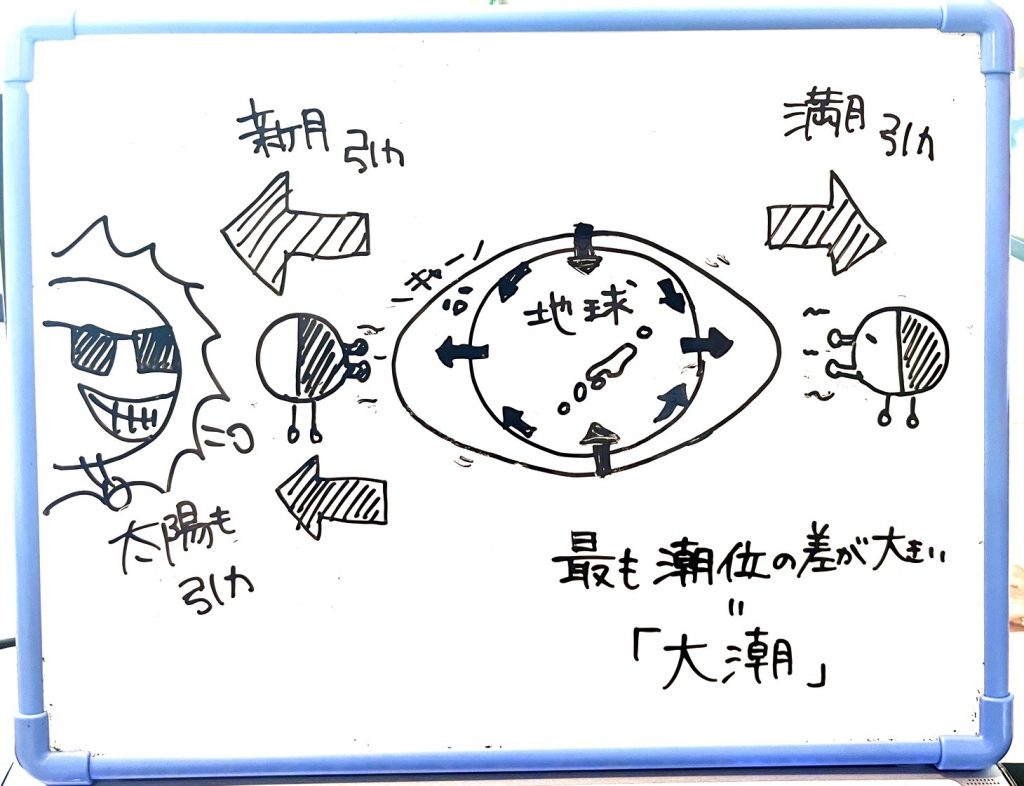 新月 引力
満月 引力
ギャーン
地球
太陽も
引力
最も潮位の差が大きい
=
「大潮」